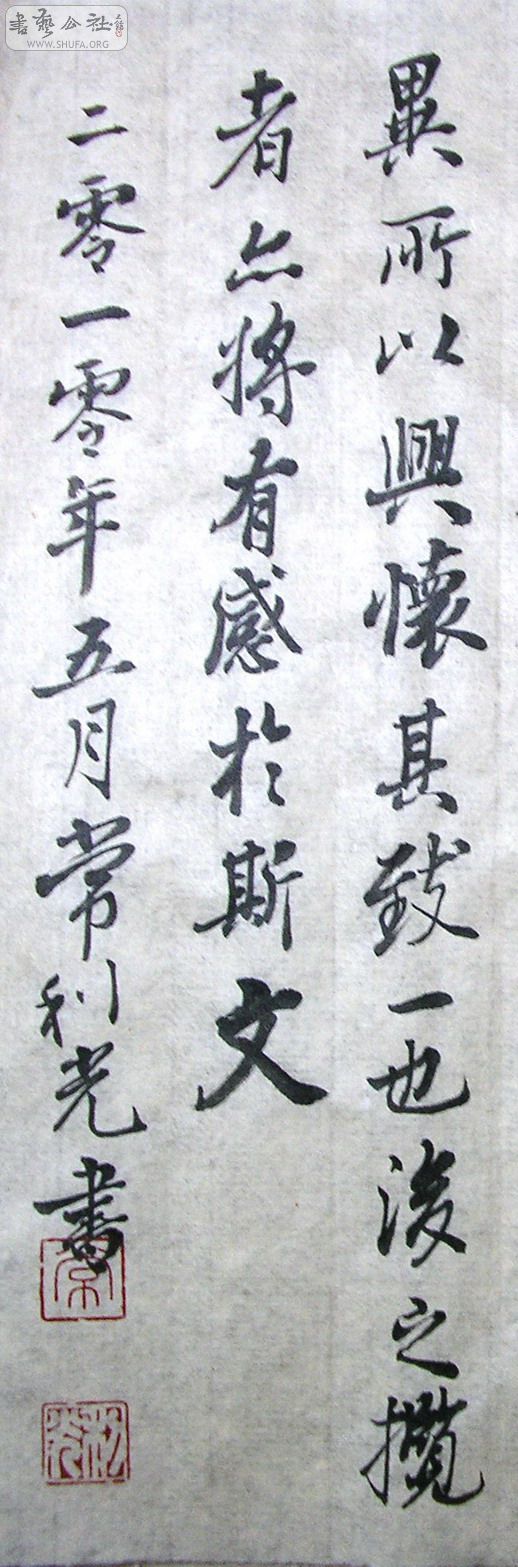 異所以興懷其致一也後之攬
者亦將有感於斯文
二零一零年五月常利光書
書藝公社
WWW.SHUFA.ORG